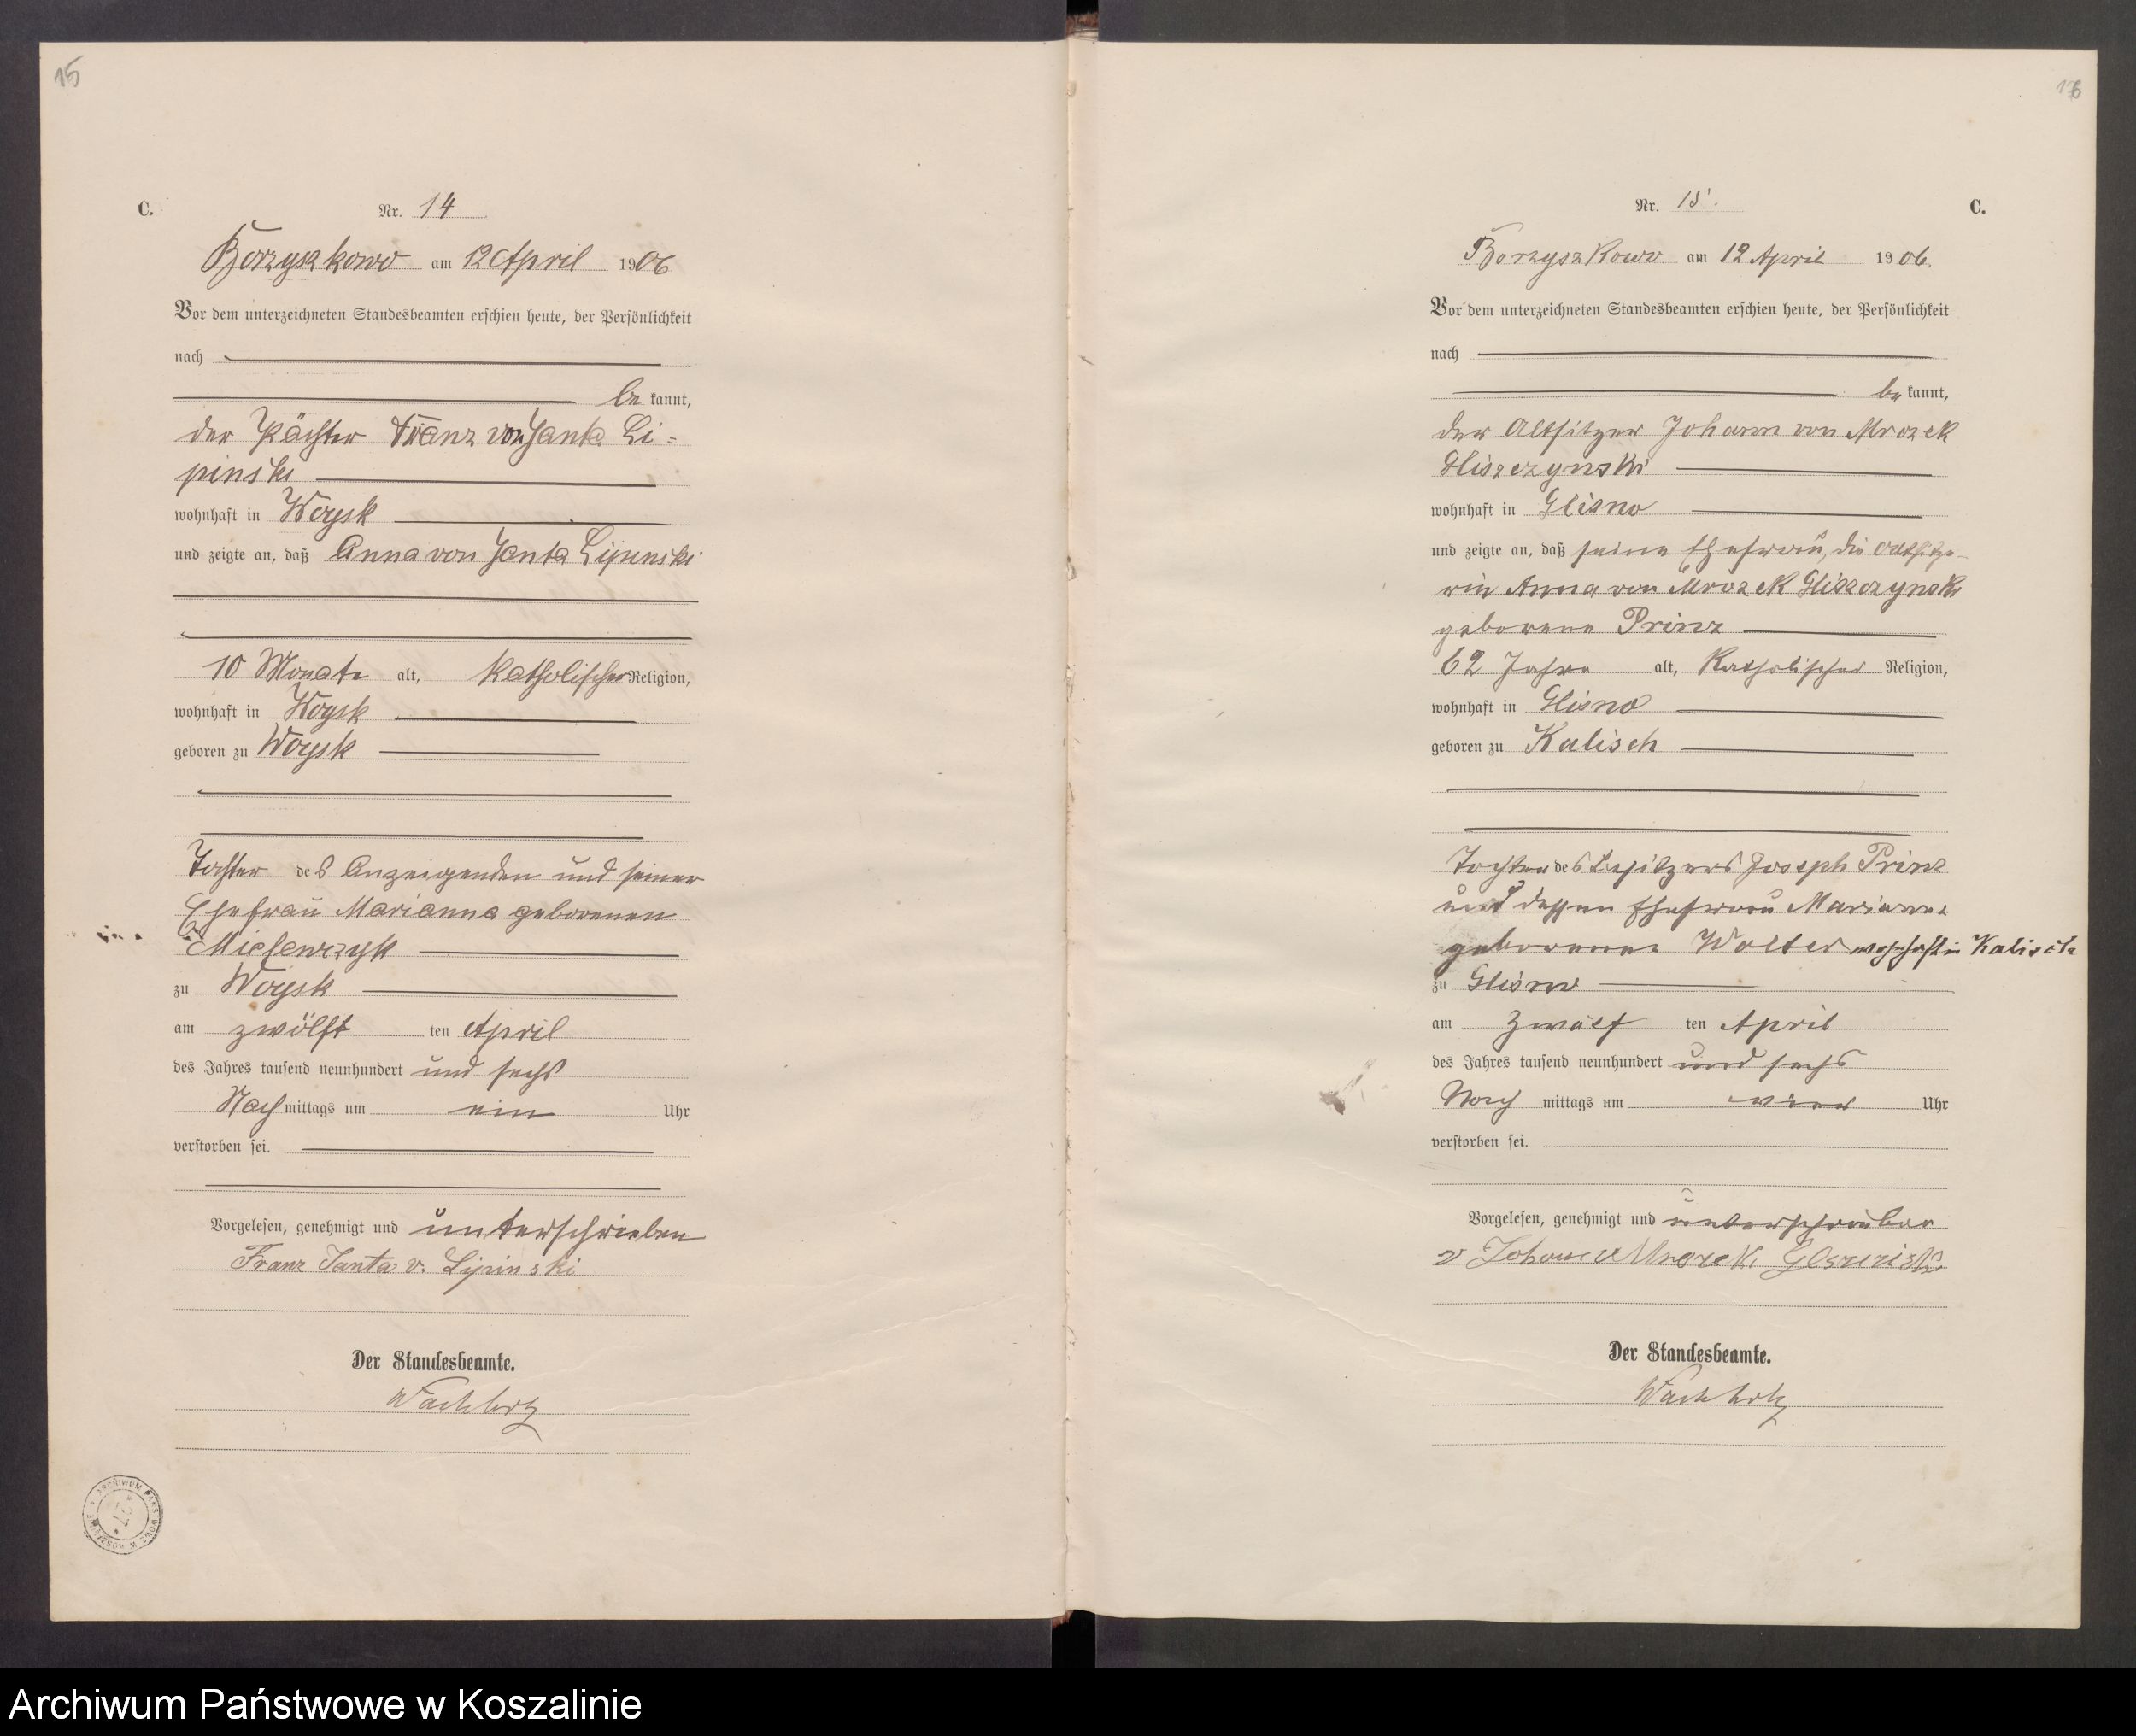 15
C.
Nr. 14
Borzyszkowo am 12 April 1906
Vor dem unterzeichneten Standesbeamten erschien heute, der Persönlichkeit
nach
be kannt,
der Pächter Franz von Janta Li=
pinski
wohnhaft in Woysk
und zeigte an, daß Anna von Janta Lipinski
10 Monate alt, katholischer Religion,
wohnhaft in Woysk
geboren zu Woysk
Tochter des Anzeigenden und seiner
Ehefrau Marianna geborenen
zu Woysk
am zwölft ten April
des Jahres tausend neunhundert und sechs
Nach mittags um ein Uhr
verstorben sei.
Vorgelesen, genehmigt und unterschrieben
Franz Janta v. Lipinski
Der Standesbeamte.
Wachholz
16
Nr. 15.
C.
Borzyszkowo am 12 April 1906.
Vor dem unterzeichneten Standesbeamten erschien heute, der Persönlichkeit
nach
be kannt,
der Altsitzer Johann von Mrozek
Gliszczynski
wohnhaft in Glisno
und zeigte an, daß seine Ehefrau, die Altsitze-
rin Anna von Mrozek Gliszczynski
geborene Prinz
62 Jahre alt, katholischer Religion,
wohnhaft in Glisno
geboren zu Kalisch
Tochter des Besitzers Joseph Prinz
und dessen Ehefrau Marianna
geborenen Wolter wohnhaft in Kalisch
zu Glisno
am zwölf ten April
des Jahres tausend neunhundert und sechs
Nach mittags um vier Uhr
verstorben sei.
Vorgelesen, genehmigt und unterschrieben
Johann Mrozek
Der Standesbeamte.
Wachholz
Archiwum Państwowe w Koszalinie